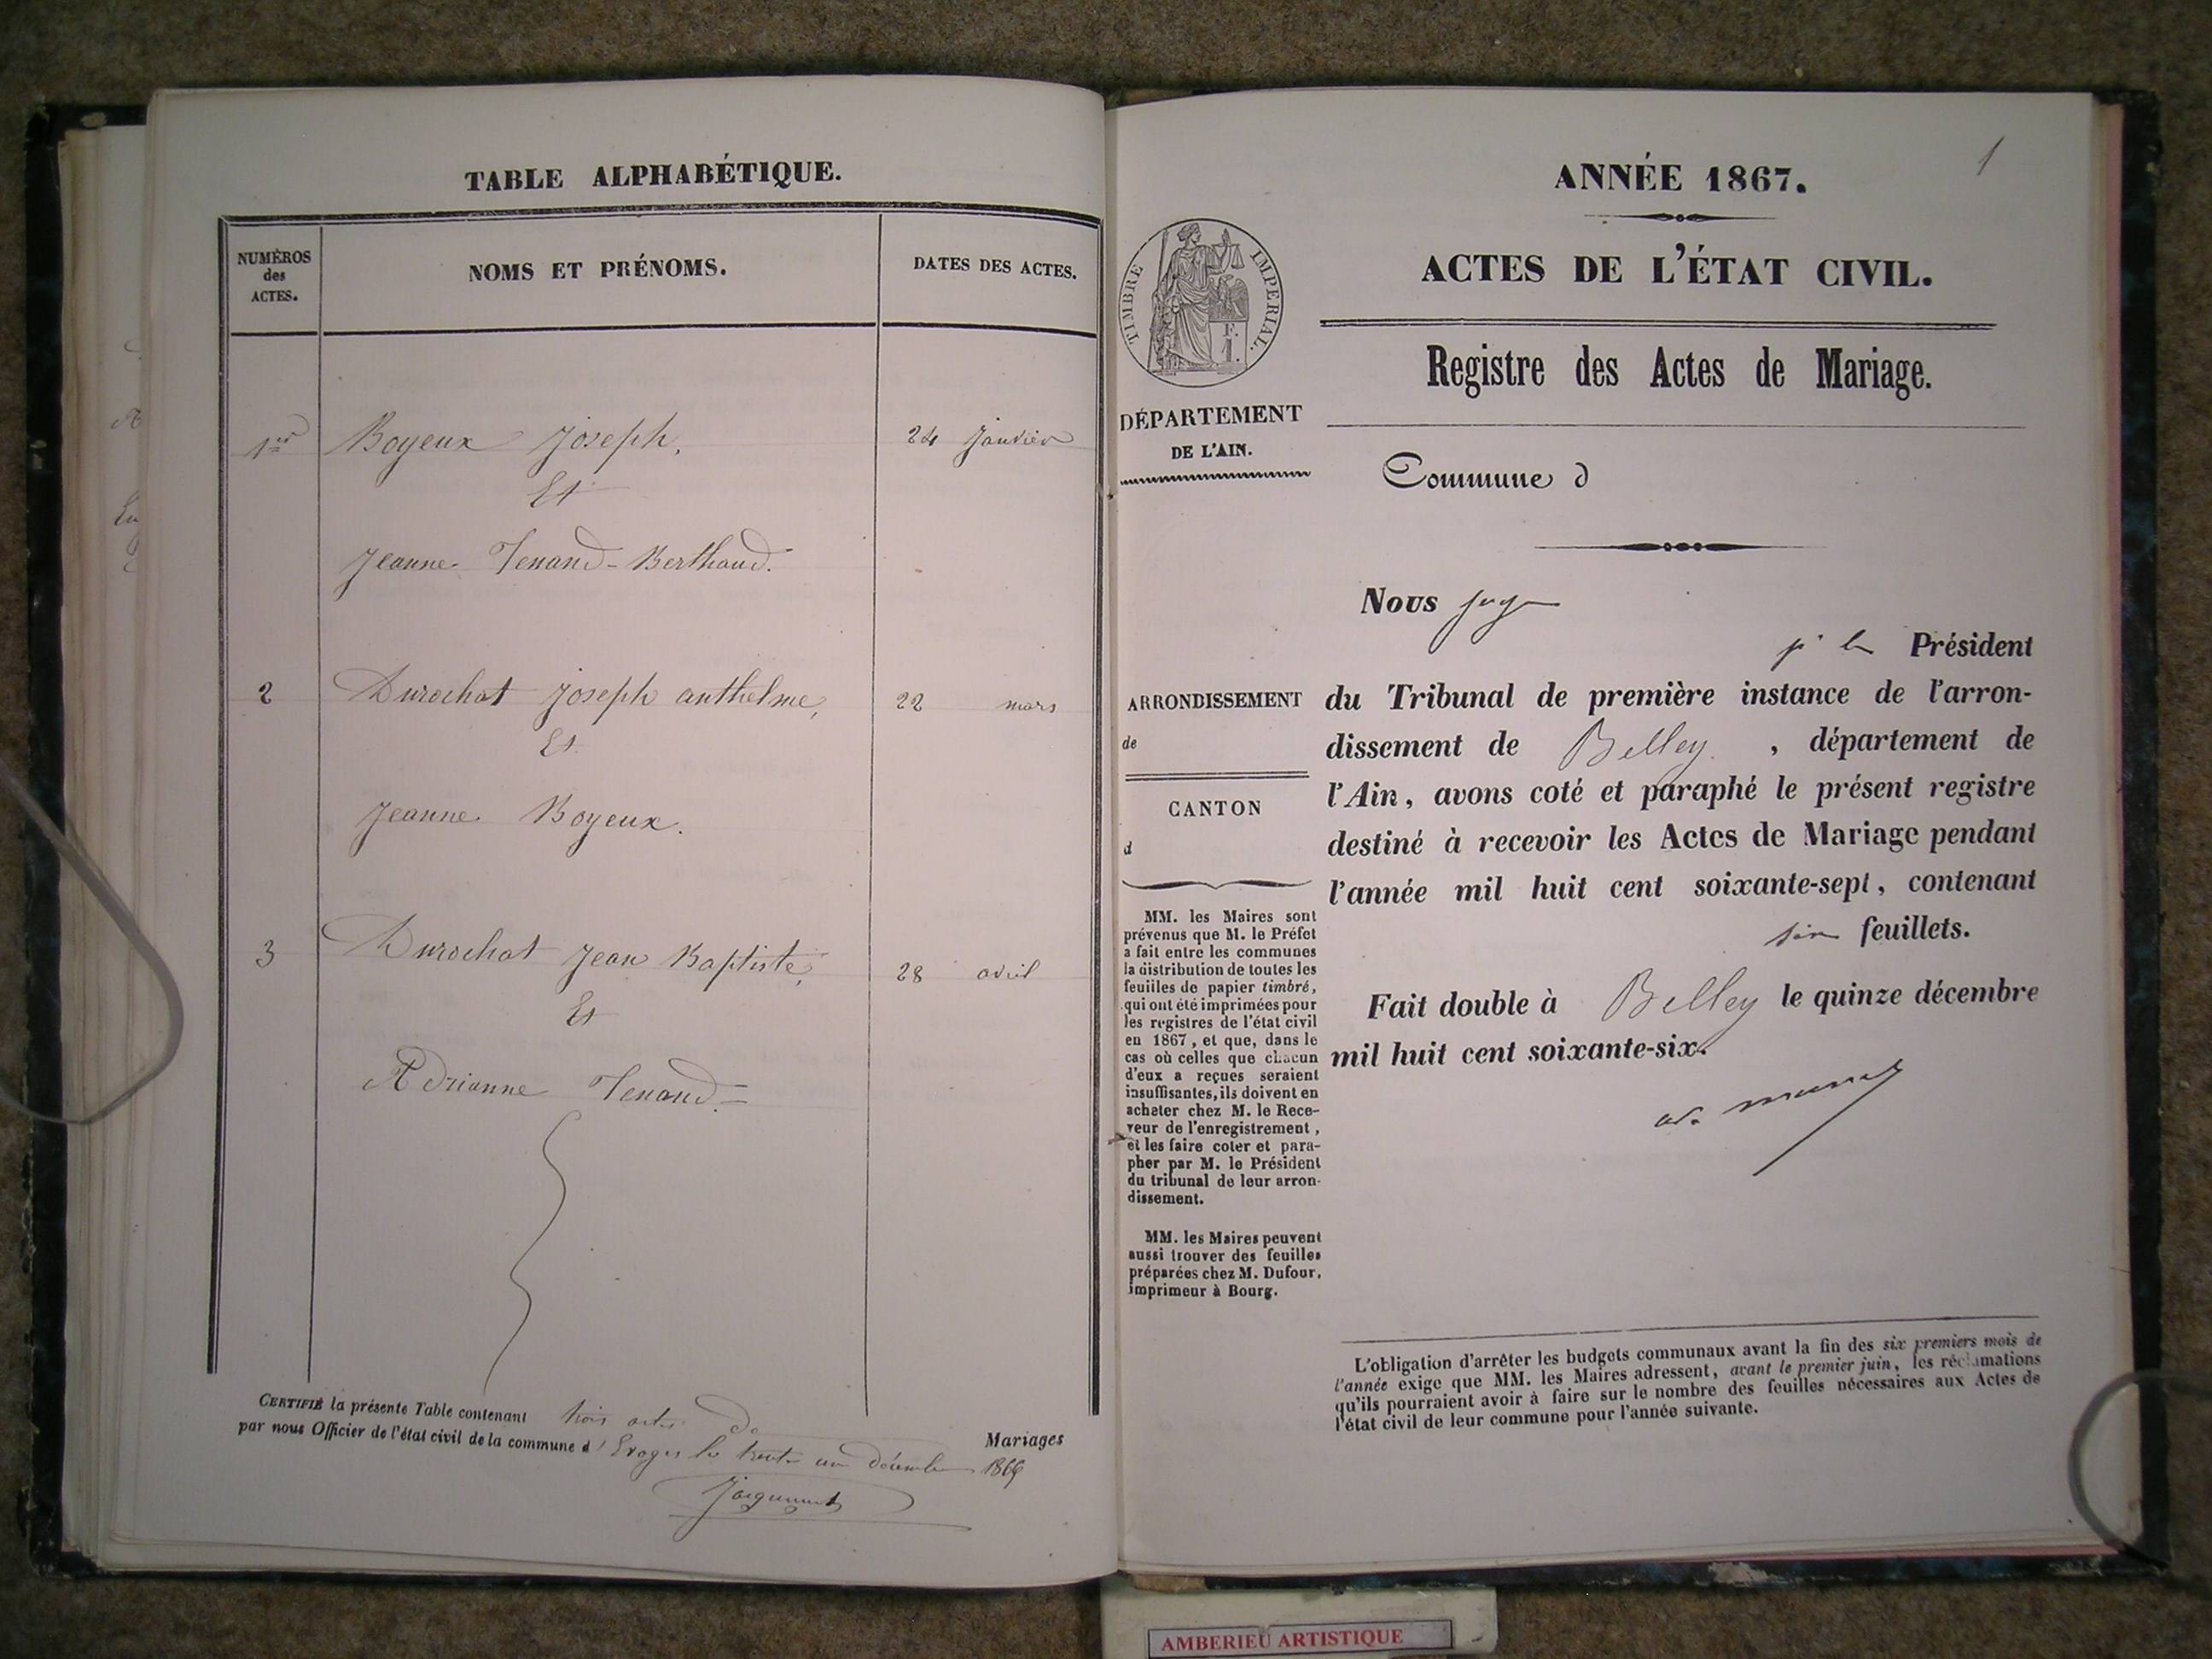 TABLE ALPHABÉTIQUE.
NUMÉROS
des
ACTES.
NOMS ET PRÉNOMS.
DATES DES ACTES.
1er Boyeux Joseph, 24 Janvier
Et
Jeanne Tenand-Berthaud.
2 Durochat Joseph anthelme, 22 mars
Et
Jeanne Boyeux.
3 Durochat Jean Baptiste, 28 avril
Et
Adrianne Tenand.
CERTIFIÉ la présente Table contenant trois actes de Mariages
par nous Officier de l'état civil de la commune d' Evoges le trente un décembre 1866
1
ANNÉE 1867.
ACTES DE L'ÉTAT CIVIL.
Registre des Actes de Mariage.
TIMBRE IMPERIAL.
F.
1.
DÉPARTEMENT
DE L'AIN.
Commune d
Nous juge
Président
ARRONDISSEMENT
de
CANTON
d
du Tribunal de première instance de l'arron-
dissement de Belley, département de
l'Ain, avons coté et paraphé le présent registre
destiné à recevoir les Actes de Mariage pendant
l'année mil huit cent soixante-sept, contenant
six feuillets.
Fait double à Belley le quinze décembre
mil huit cent soixante-six.
MM. les Maires sont
prévenus que M. le Préfet
a fait entre les communes
la distribution de toutes les
feuilles de papier timbré,
qui ont été imprimées pour
les registres de l'état civil
en 1867, et que, dans le
cas où celles que chacun
d'eux a reçues seraient
insuffisantes, ils doivent en
acheter chez M. le Rece-
veur de l'enregistrement,
et les faire coter et para-
pher par M. le Président
du tribunal de leur arron-
dissement.
MM. les Maires peuvent
aussi trouver des feuilles
préparées chez M. Dufour,
imprimeur à Bourg.
L'obligation d'arrêter les budgets communaux avant la fin des six premiers mois de
l'année exige que MM. les Maires adressent, avant le premier juin, les réclamations
qu'ils pourraient avoir à faire sur le nombre des feuilles nécessaires aux Actes de
l'état civil de leur commune pour l'année suivante.
AMBERIEU ARTISTIQUE